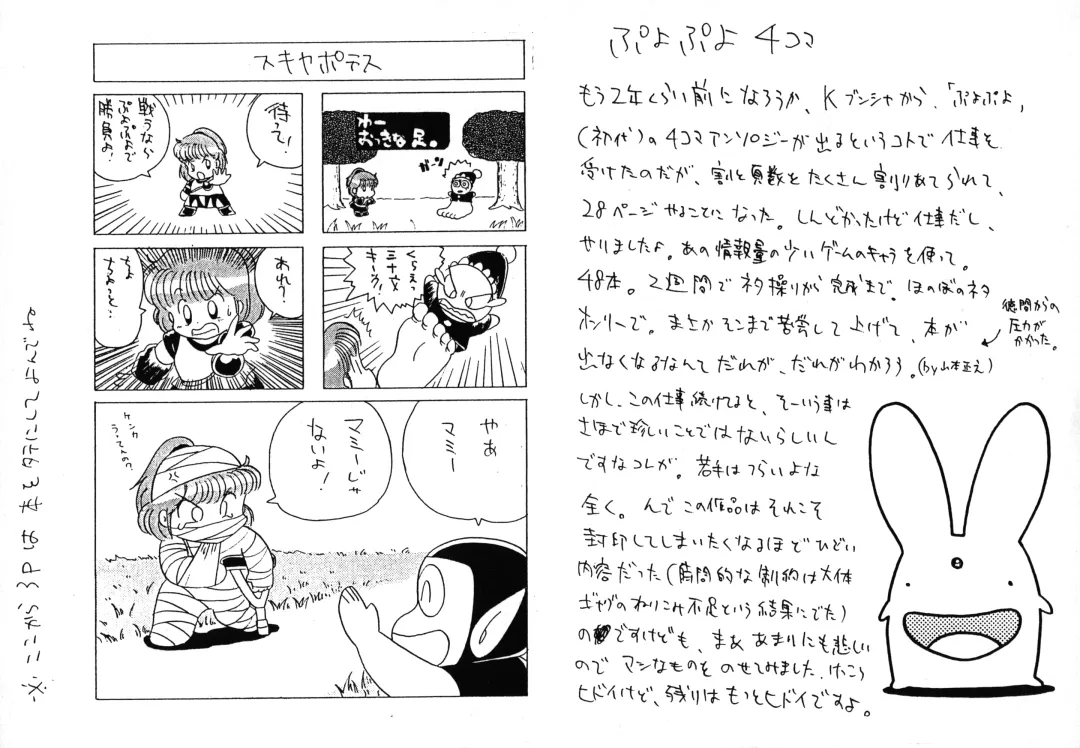 ぷよぷよ 4コマ
もう2年くらい前になろうか、Kブンシャから、「ぷよぷよ」
(初代)の4コマアンソロジーが出るというコトで仕事を
受けたのだが、割と頁数をたくさん割りあてられて、
28ページやることになった。しんどかったけど仕事だし、
やりましたよ。あの情報量の少いゲームのキャラを使って。
48本。2週間でネタ操りから完成まで。ほのぼのネタ
オンリーで。まさかそこまで苦労して上げて、本が
出なくなるなんてだれが、だれがわかろう。(by山本正之)
徳間からの
圧力が
かかった。
しかし、この仕事続けてると、そーいう事は
さほど珍しいことではないらしいん
ですなコレが。若手はつらいよな
全く。んでこの作品はそれこそ
封印してしまいたくなるほどひどい
内容だった(時間的な制約は大体
ギャグのねりこみ不足という結果にでた)
のですけども、まぁあまりにも悲しい
のでマシなものをのせてみました。けっこう
ヒドイけど、残りはもっとヒドイですよ。
スキヤポデス
わー
おっきな足。
ガーン
待って!
戦うなら
ぷよぷよで
勝負よ!
くらえっ
三十文
キーック!
あれ?
ちょ
ちょっと
やぁ
マミー
マミーじゃ
ないよ!
ケンカ
うってんの?
※ここから3Pは本をタテにしてよんでよね